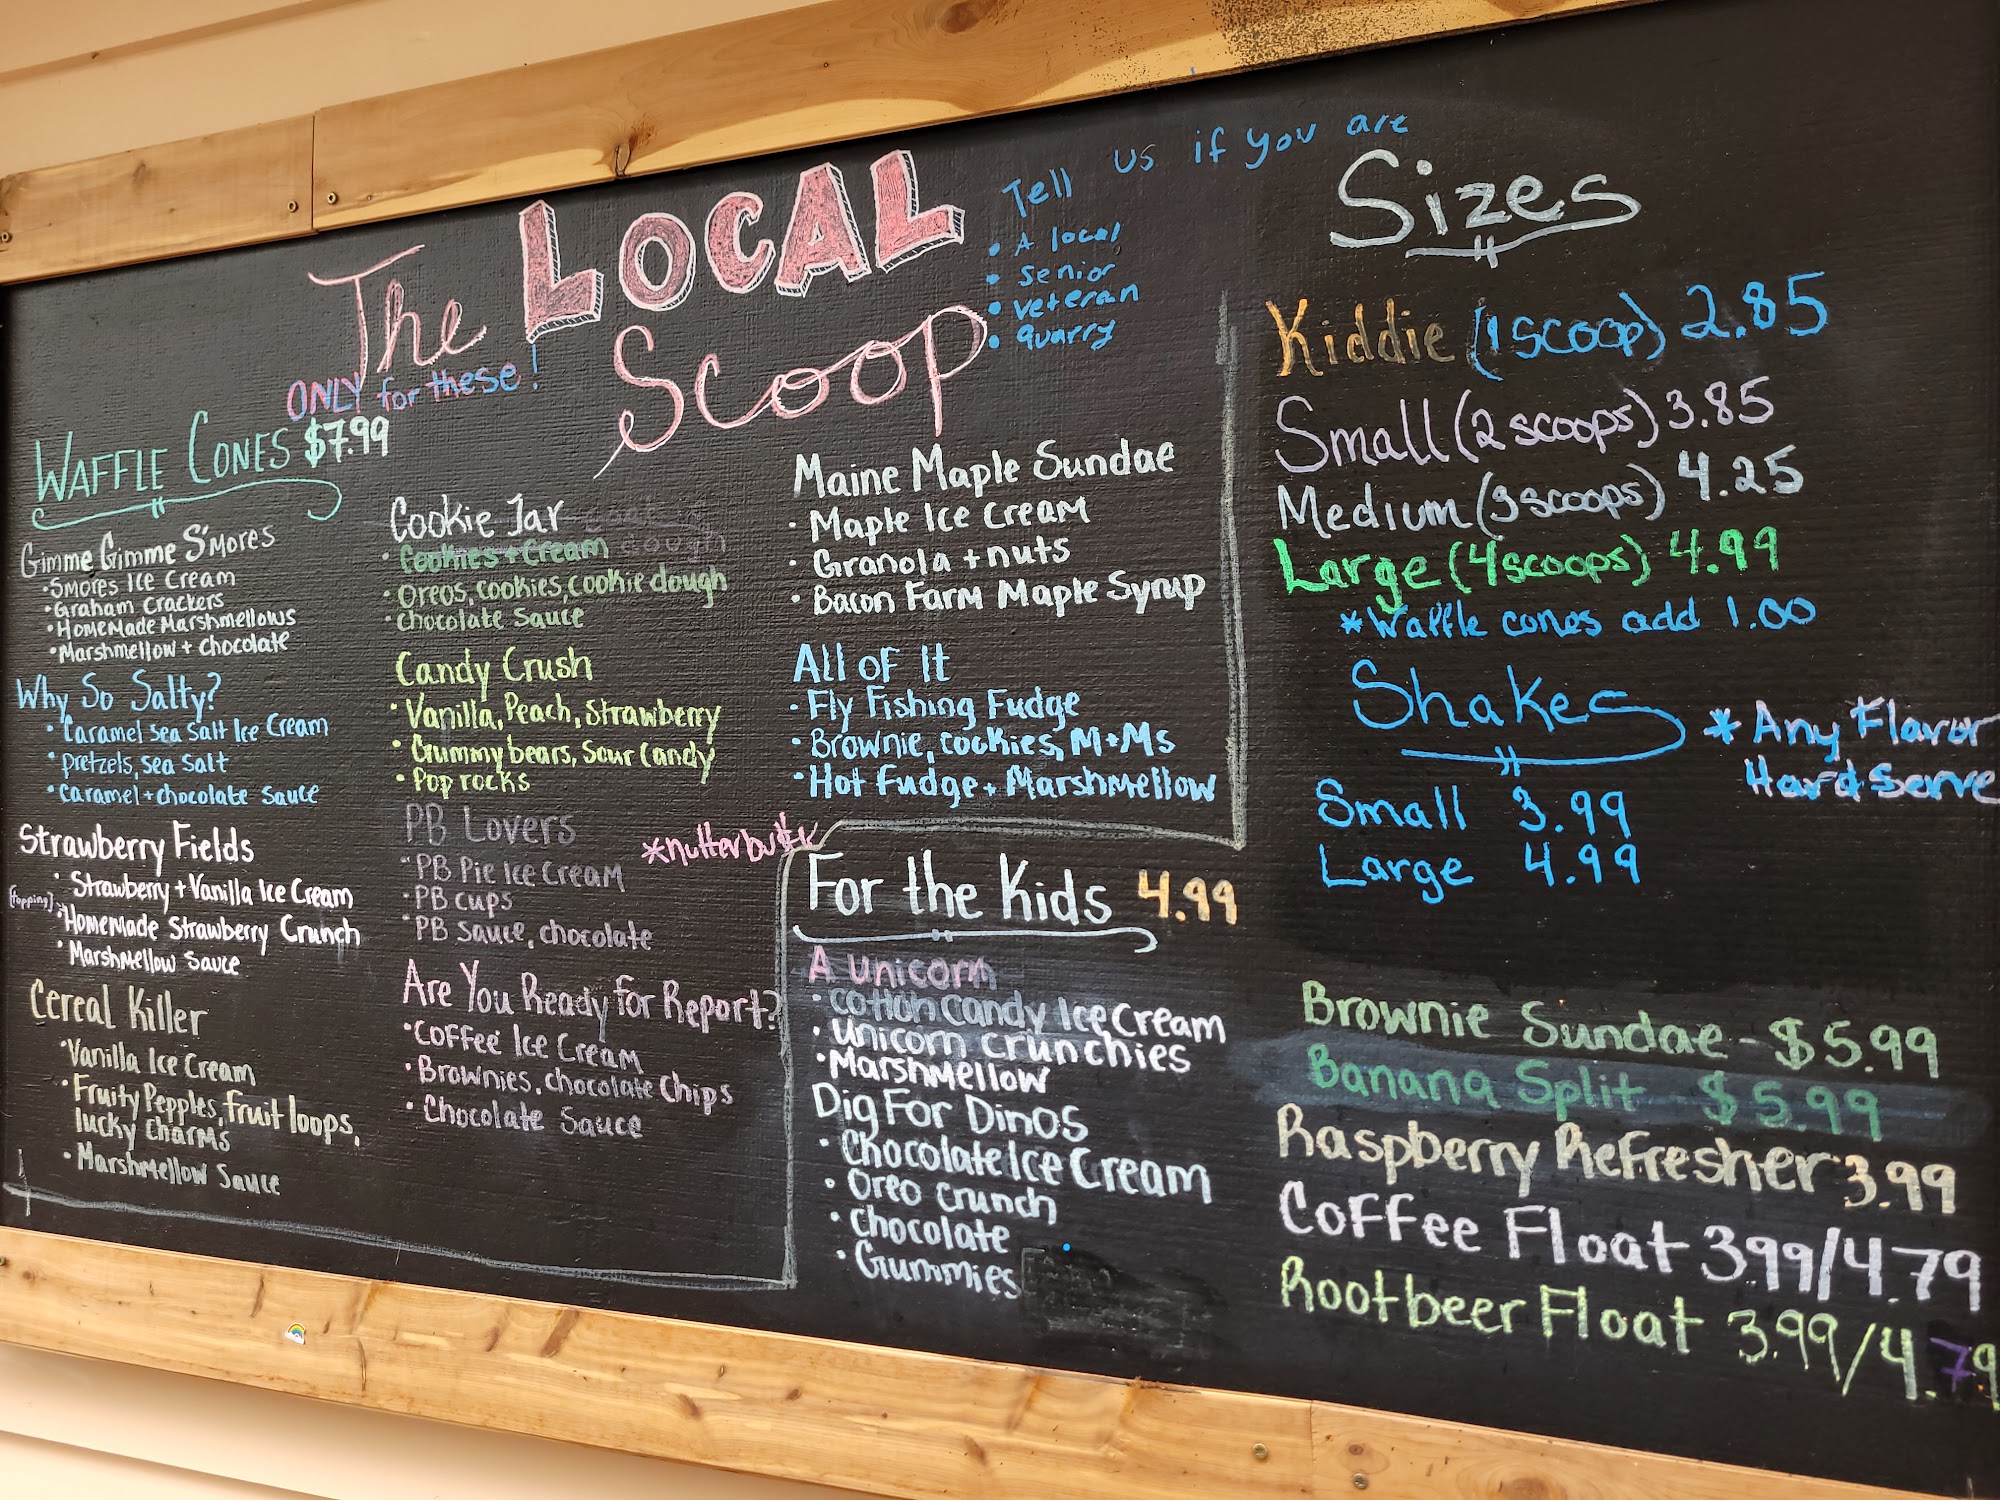 The LOCAL
Scoop
Tell us if you are
• A local
• Senior
• veteran
• quarry
ONLY for these!
WAFFLE CONES $7.99
Gimme Gimme S'mores
• Smores Ice Cream
• Graham Crackers
• HomeMade Marshmellows
• Marshmellow + chocolate
Why So Salty?
• Caramel sea salt Ice Cream
• pretzels, sea salt
• caramel + chocolate sauce
Strawberry Fields
• Strawberry + Vanilla Ice Cream
[topping] • HomeMade Strawberry Crunch
• Marshmellow Sauce
Cereal Killer
• Vanilla Ice Cream
• Fruity Pepples, fruit loops,
lucky charms
• Marshmellow Sauce
Cookie Jar
• Cookies + Cream dough
• Oreos, cookies, cookie dough
• chocolate Sauce
Candy Crush
• Vanilla, Peach, Strawberry
• Gummy bears, Sour Candy
• Pop rocks
PB Lovers *nutterbutter
• PB Pie Ice Cream
• PB cups
• PB sauce, chocolate
Are You Ready for Report?
• Coffee Ice Cream
• Brownies, chocolate Chips
• Chocolate Sauce
Maine Maple Sundae
• Maple Ice Cream
• Granola + nuts
• Bacon Farm Maple Syrup
All of It
• Fly Fishing Fudge
• Brownie, cookies, M+Ms
• Hot Fudge + Marshmellow
For the Kids 4.99
A unicorn
• Cotton Candy Ice Cream
• Unicorn crunchies
• Marshmellow
Dig For Dinos
• Chocolate Ice Cream
• Oreo crunch
• chocolate
• Gummies
Sizes
Kiddie (1 scoop) 2.85
Small (2 scoops) 3.85
Medium (3 scoops) 4.25
Large (4 scoops) 4.99
*Waffle cones add 1.00
Shakes *Any Flavor
Hard Serve
Small 3.99
Large 4.99
Brownie Sundae - $5.99
Banana Split $5.99
Raspberry Refresher 3.99
Coffee Float 3.99/4.79
Rootbeer Float 3.99/4.79